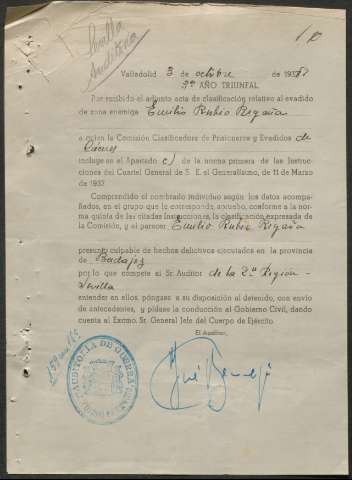 Sevilla
Auditoria
Valladolid 3 de octubre de 1938
3er AÑO TRIUNFAL
Por recibido el adjunto acta de clasificación relativo al evadido
de zona enemiga Emilio Rubio Regaña
a quien la Comisión Clasificadora de Prisioneros y Evadidos de
Cáceres
incluye en el Apartado c) de la norma primera de las Instruc-
ciones del Cuartel General de S. E. el Generalísimo, de 11 de Marzo
de 1937.
Comprendido el nombrado individuo según los datos acompa-
ñados, en el grupo que le corresponde, apruebo, conforme a la nor-
ma quinta de las citadas Instrucciones, la clasificación expresada de
la Comisión, y al parecer Emilio Rubio Regaña
presunto culpable de hechos delictivos ejecutados en la provincia
de Badajoz
por lo que compete al Sr. Auditor de la 2ª Región -
Sevilla
entender en ellos, póngase a su disposición al detenido, con envío
de antecedentes, y pídase la conducción al Gobierno Civil, dando
cuenta al Excmo. Sr. General Jefe del Cuerpo de Ejército.
El Auditor,
AUDITORIA DE GUERRA